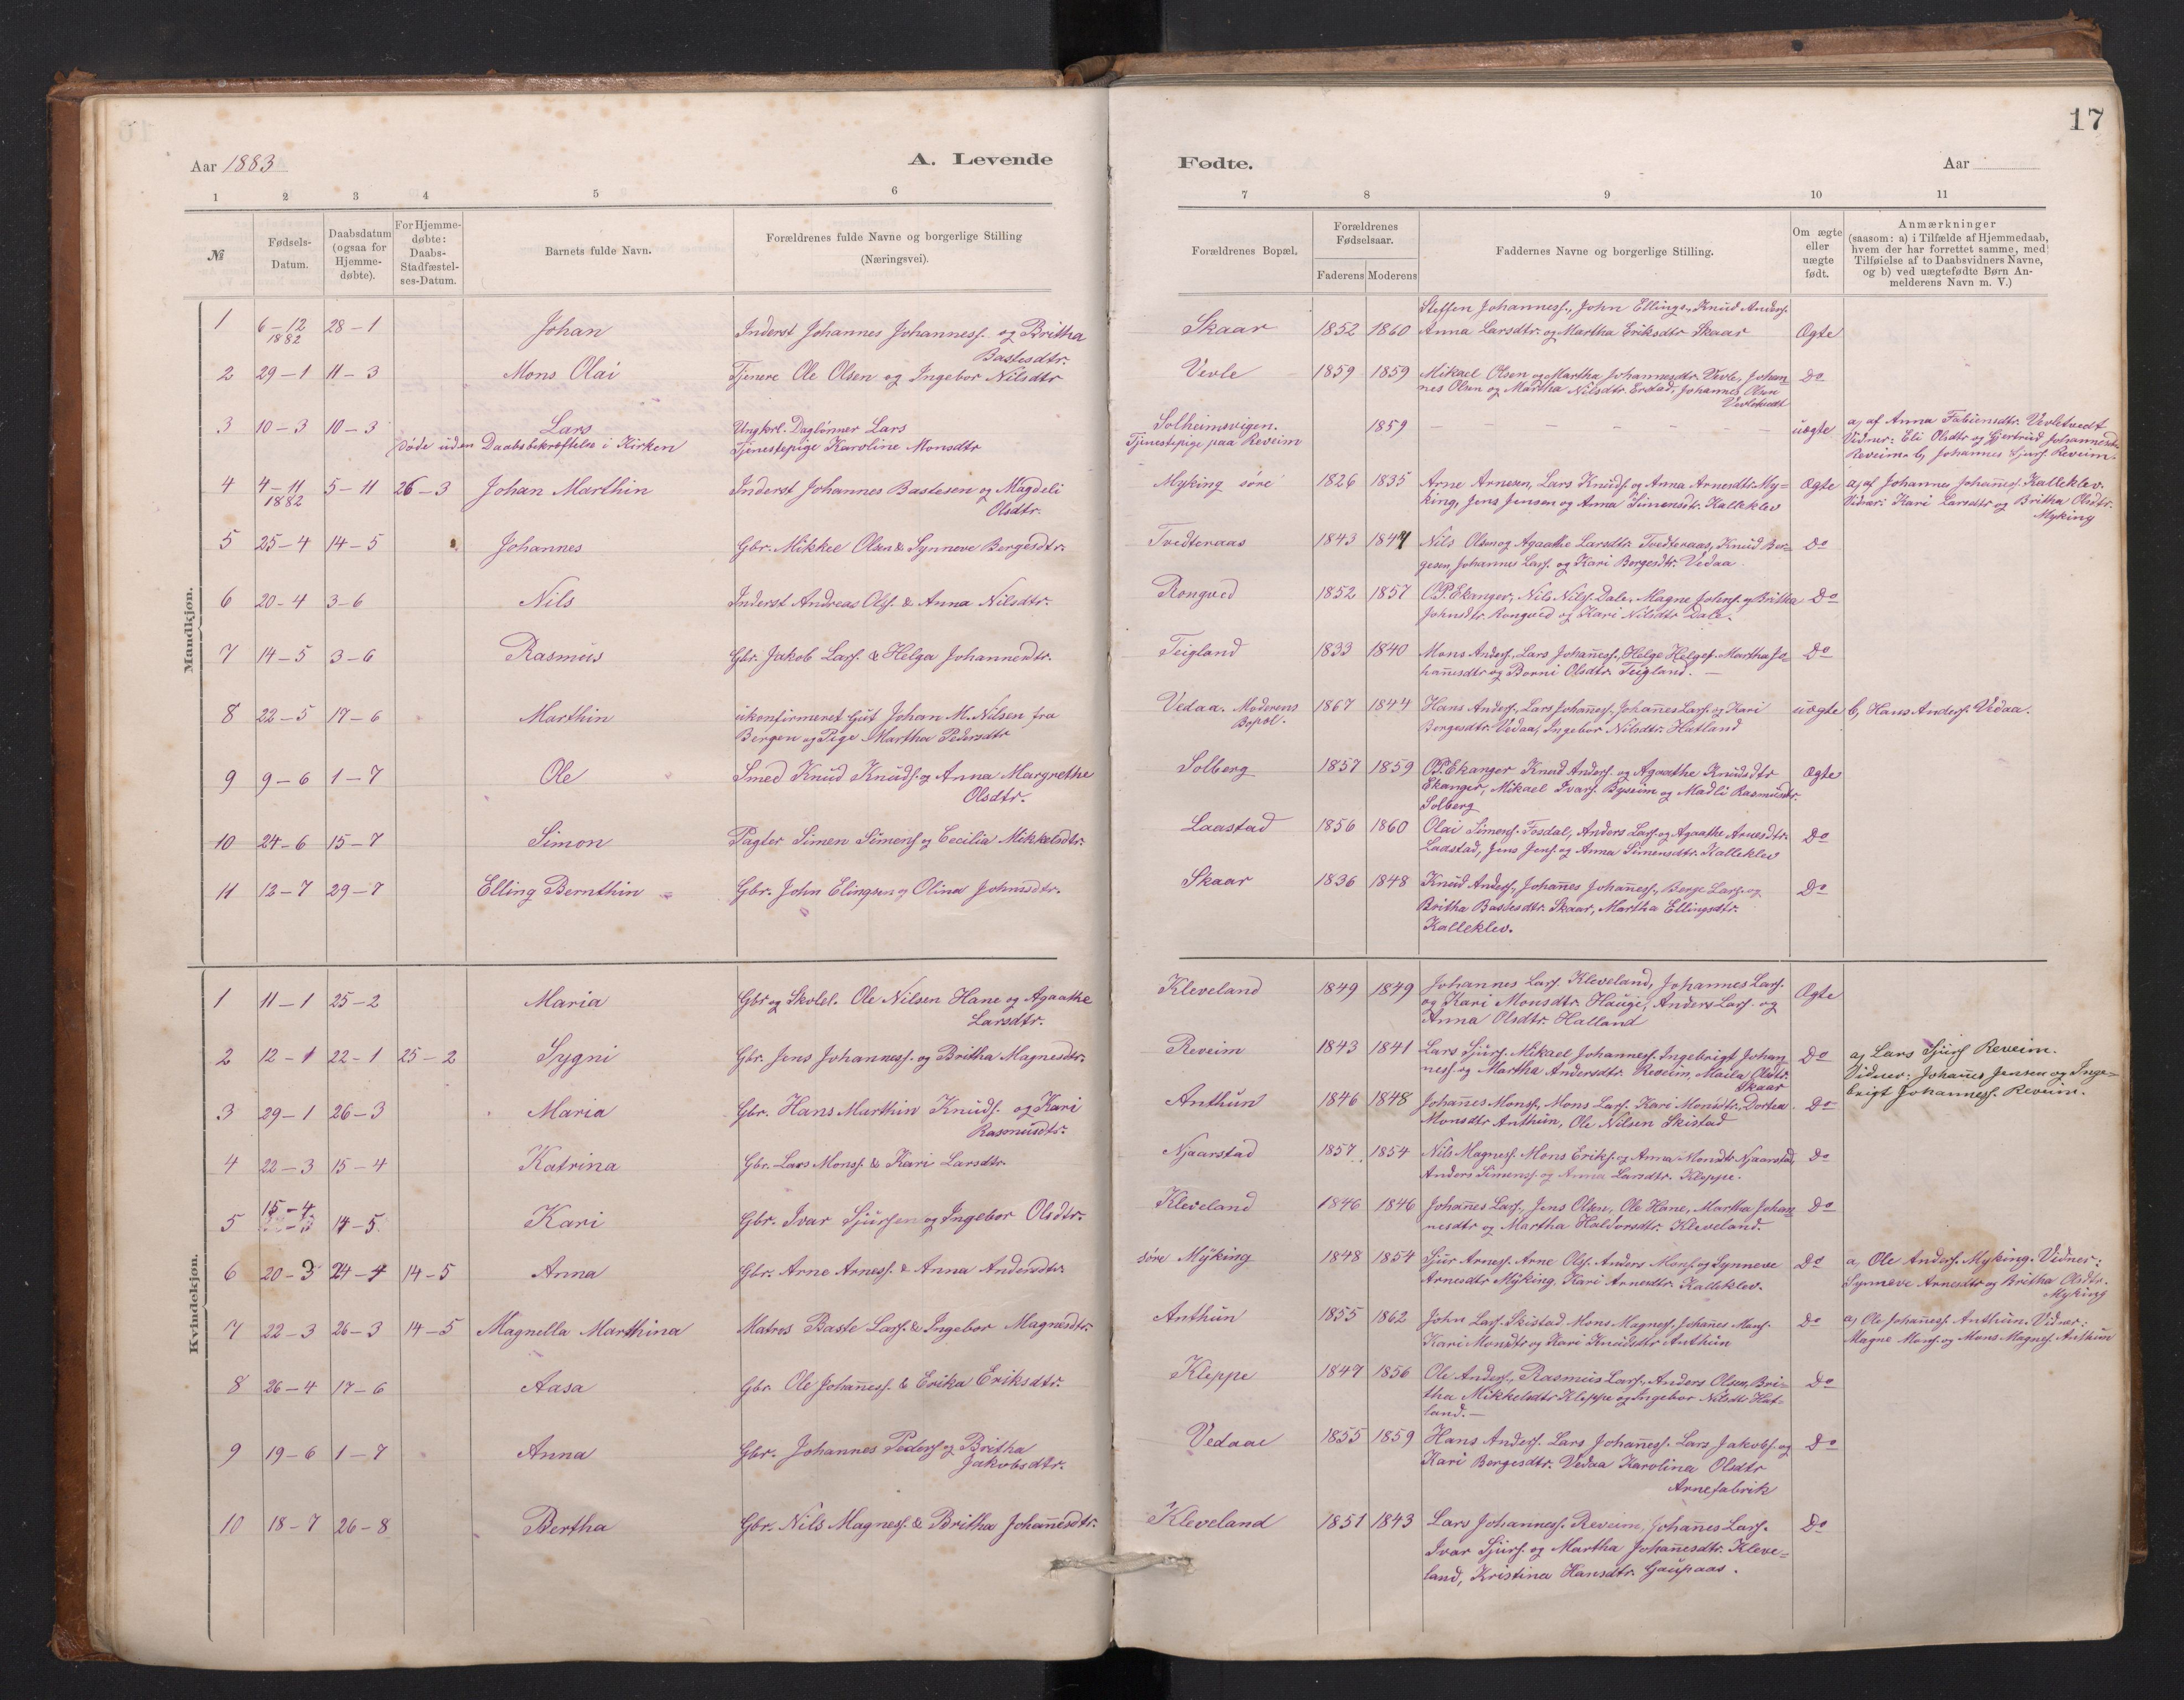 17
Aar 1883
A. Levende
Fødte.
Aar
1 2 3 4 5 6 7 8 9 10 11
№
Fødsels-
Datum.
Daabsdatum
(ogsaa for
Hjemme-
døbte).
For Hjemme-
døbte:
Daabs-
Stadfæstel-
ses-Datum.
Barnets fulde Navn.
Forældrenes fulde Navne og borgerlige Stilling
(Næringsvei).
Forældrenes Bopæl.
Forældrenes
Fødselsaar.
Faderens Moderens
Faddernes Navne og borgerlige Stilling.
Om ægte
eller
uægte
født.
Anmærkninger
(saasom: a) i Tilfælde af Hjemmedaab,
hvem der har forrettet samme, med
Tilføielse af to Daabsvidners Navne,
og b) ved uægtefødte Børn An-
melderens Navn m. V.)
Mandkjøn.
Steffen Johanness., John Ellings., Knud Anders.
1 6-12 28-1 Johan Inderst Johannes Johanness. og Britha Skaar 1852 1860 Anna Larsdtr. og Martha Eriksdtr Skaar Ægte
1882 Bastesdtr.
2 29-1 11-3 Mons Olai Tjenere Ole Olsen og Ingebor Nilsdtr Vevle 1859 1859 Mikael Olsen og Martha Johannesdtr. Vevle, Johan- Do
nes Olsen og Martha Nilsdtr. Erstad, Johannes Olsen
Vevletvedt
3 10-3 10-3 Lars Ungkrl. Daglønner Lars Solheimsvigen. 1859 uægte a, af Anna Fabiensdtr. Vevletvedt
Døde uden Daabsbekræftelse i Kirken Tjenestepige Karoline Monsdtr Tjenestepige paa Reveim Vidner: Eli Olsdtr og Gjertrud Johannesdtr.
Reveim. b, Johannes Sjurs. Reveim.
4 4-11 5-11 26-3 Johan Marthin Inderst Johannes Bastesen og Magdeli Myking søre 1826 1835 Arne Arnesen, Lars Knuds. og Anna Arnesdtr. My- Ægte a, af Johannes Johañes. Kalleklev.
1882 Olsdtr. king, Jens Jensen og Anna Simensdtr. Kalleklev Vidner: Kari Larsdtr og Britha Olsdtr.
Myking
5 25-4 14-5 Johannes Gbr. Mikkel Olsen & Synneve Bergesdtr. Tvedteraas 1843 1847 Nils Olsen og Agaathe Larsdtr. Tvedteraas, Knud Ber- Do
gesen, Johannes Lars. og Kari Bergesdtr. Vedaa
6 20-4 3-6 Nils Inderst Andreas Ols. & Anna Nilsdtr. Rongved 1852 1857 O.P. Ekanger, Nils Nils. Dale, Magne Johns. og Britha Do
Johnsdtr. Rongved og Kari Nilsdtr Dale.
7 14-5 3-6 Rasmus Gbr. Jakob Lars. & Helga Johannesdtr. Teigland 1833 1840 Mons Anders., Lars Johañess., Helge Helges. Martha Jo- Do
hañesdtr og Borni Olsdtr. Teigland.
8 22-5 17-6 Marthin ukonfirmeret Gut Johan M. Nilsen fra Vedaa. Moderens 1867 1844 Hans Anders., Lars Johañes., Johañes Lars. og Kari uægte b, Hans Anders. Vedaa.
Bergen og Pige Martha Pedersdtr Bopæl. Bergesdtr. Vedaa, Ingebor Nilsdtr. Hatland
9 9-6 1-7 Ole Smed Knud Knuds. og Anna Margrethe Solberg 1857 1859 O.P. Ekanger Knud Anders. og Agaathe Knudsdtr Ægte
Olsdtr. Ekanger, Mikael Ivars. Byseim og Madli Rasmusdtr.
Solberg
10 24-6 15-7 Simon Pagter Simen Simens. og Cecilia Mikkelsdtr. Laastad 1856 1860 Olai Simens. Fosdal, Anders Lars. og Agaathe Arnesdtr. Do
Laastad, Jens Jens. og Anna Simensdtr. Kalleklev
11 12-7 29-7 Elling Bernthin Gbr. John Elingsen og Olina Johnsdtr. Skaar 1836 1848 Knud Anders., Johañes Johañess., Berge Lars. og Do
Britha Bastesdtr. Skaar, Martha Ellingsdtr.
Kalleklev.
Kvindekjøn.
1 11-1 25-2 Maria Gbr og Skolel. Ole Nilsen Hane og Agaathe Kleveland 1849 1849 Johannes Lars. Kleveland, Johannes Lars. Ægte
Larsdtr. og Kari Monsdtr. Hauge, Anders Lars. og
Anna Olsdtr. Halland
2 12-1 22-1 25-2 Sygni Gbr. Jens Johanness. og Britha Magnesdtr. Reveim 1843 1841 Lars Sjurs. Mikael Johanness. Ingebrigt Johan- Do a, Lars Sjurs Reveim.
ness. og Martha Andersdtr. Reveim, Maila Olsdtr. Vidner: Johañes Jensen og Inge-
Skaar brigt Johanness. Reveim.
3 29-1 26-3 Maria Gbr. Hans Marthin Knuds. og Kari Anthun 1846 1848 Johañes Monss., Mons Lars. Kari Monsdtr., Dortea Do
Rasmusdtr. Monsdtr Anthun, Ole Nilsen Skistad
4 22-3 15-4 Katrina Gbr. Lars Monss. & Kari Larsdtr. Njaarstad 1857 1854 Nils Magnes. Mons Eriks. og Anna Monsdtr. Njaarstad, Do
Anders Simens. og Anna Larsdtr. Kleppe.
5 15-4 14-5 Kari Gbr. Ivar Sjursen og Ingebor Olsdtr. Kleveland 1846 1846 Johañes Lars., Jens Olsen, Ole Hane, Martha Johan- Do
nesdtr og Martha Haldorsdtr. Kleveland.
6 20-3 24-4 14-5 Anna Gbr. Arne Arness. & Anna Andersdtr. søre Myking 1848 1854 Sjur Arnes. Arne Ols. Anders Mons. og Synneve Do a, Ole Anders. Myking. Vidner:
Arnesdtr Myking, Kari Arnesdtr. Kalleklev. Synneve Arnesdtr og Britha Olsdtr.
Myking
7 22-3 26-3 14-5 Magnella Marthina Matros Baste Lars. & Ingebor Magnesdtr. Anthun 1855 1862 John Lars. Skistad Mons Magnes. Johañes Mons. Do a, Ole Johañes. Anthun. Vidner:
Kari Monsdtr og Kari Knudsdtr Anthun Magne Mons. og Mons Magnes. Anthun
8 26-4 17-6 Aasa Gbr. Ole Johañess. & Erika Eriksdtr. Kleppe 1847 1856 Ole Anders., Rasmus Lars., Anders Olsen, Bri- Do
tha Mikkelsdtr Kleppe og Ingebor Nilsdtr Hat-
land.
9 19-6 1-7 Anna Gbr. Johannes Peders. og Britha Vedaae 1855 1859 Hans Anders. Lars Johañess. Lars Jakobs. og Do
Jakobsdtr. Kari Bergesdtr. Vedaa Karolina Olsdtr
Arnefabrik
10 18-7 26-8 Bertha Gbr. Nils Magnes. & Britha Johañesdtr. Kleveland 1851 1843 Lars Johanness. Reveim, Johañes Lars. Do
Ivar Sjurs. og Martha Johañesdtr. Kleve-
land, Kristina Hansdtr. Gaupaas.